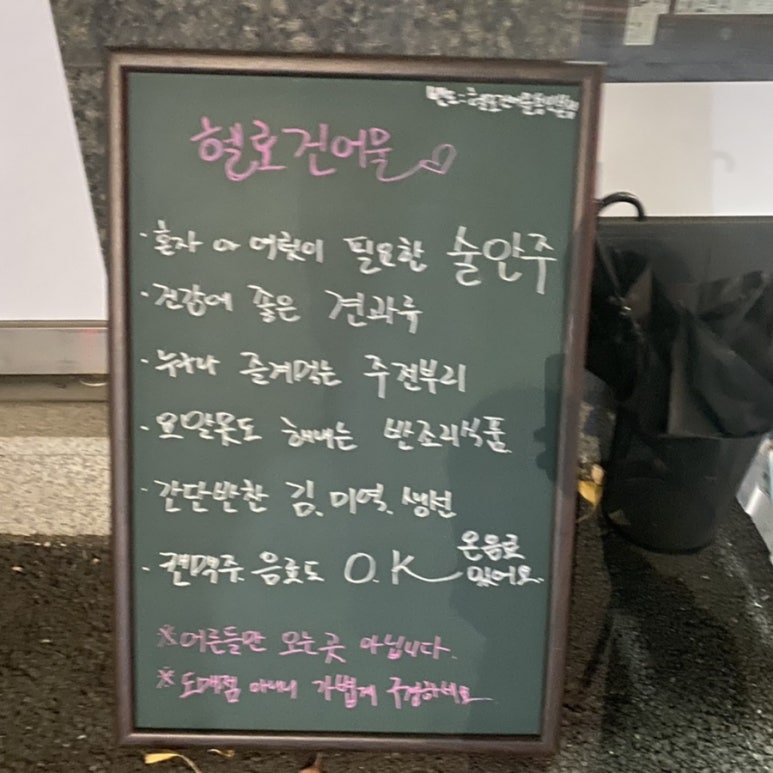 헬로건어물
· 혼자 아 어렷이 필요한 술안주
· 건강에 좋은 견과류
· 누구나 즐겨먹는 주전부리
· 요알못도 해내는 반조리식품
· 간단반찬 김, 미역, 생선
· 캔맥주, 음료도 O.K 온음료 있어요.
※ 어른들만 오는곳 아닙니다.
※ 도매점 아니니 가볍게 구경하세요